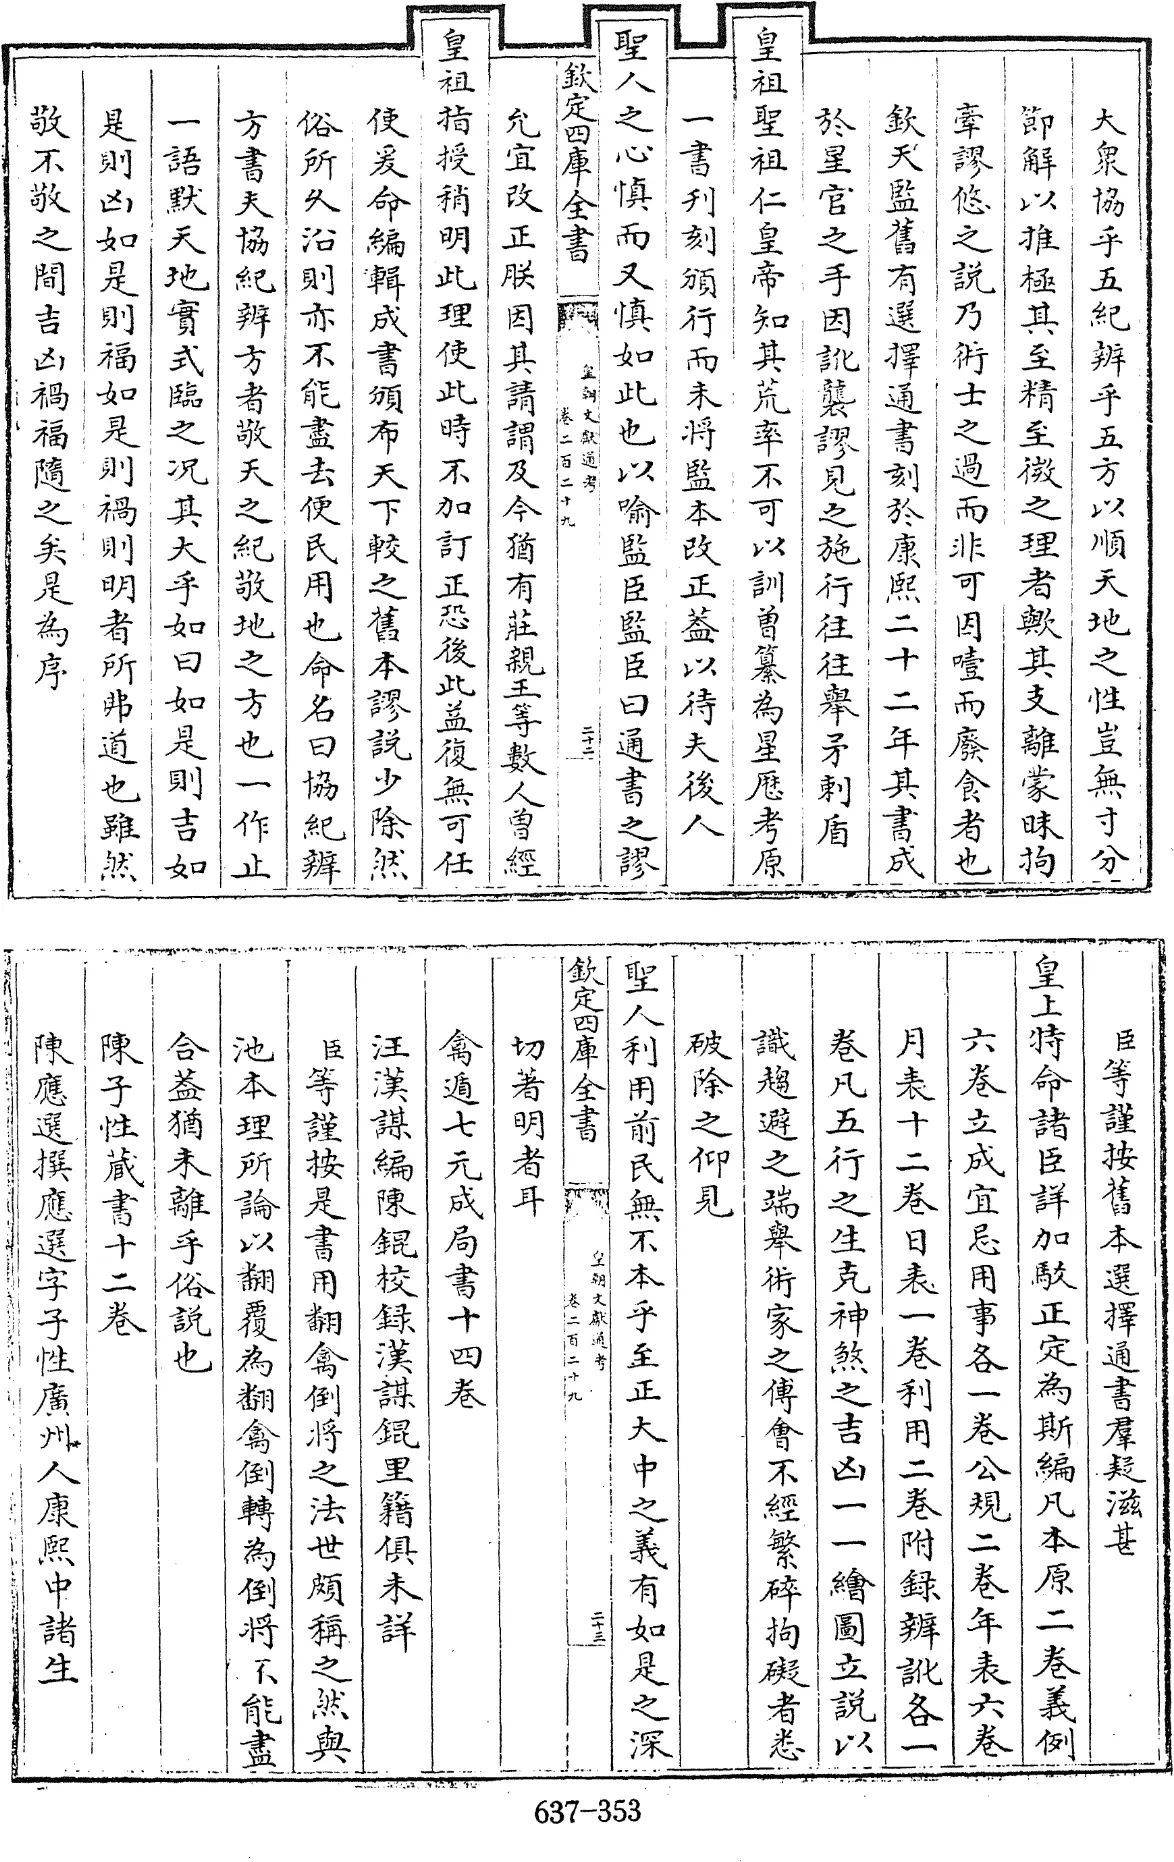 大衆協乎五紀辨乎五方以順天地之性豈無寸分
節解以推極其至精至微之理者歟其支離蒙昧拘
牽謬悠之説乃術士之過而非可因噎而廢食者也
欽天監舊有選擇通書刻於康熙二十二年其書成
於星官之手因訛襲謬見之施行往往舉矛剌盾
皇祖聖祖仁皇帝知其荒率不可以訓曾纂為星歷考原
一書刋刻頒行而未將監本改正葢以待夫後人
聖人之心慎而又慎如此也以喻監臣監臣曰通書之謬
欽定四庫全書
皇朝文獻通考
卷二百二十九
二十二
允宜改正朕因其請謂及今猶有莊親王等數人曾經
皇祖指授稍明此理使此時不加訂正恐後此益復無可任
使爰命編輯成書頒布天下較之舊本謬説少除然
俗所久沿則亦不能盡去便民用也命名曰協紀辨
方書夫協紀辨方者敬天之紀敬地之方也一作止
一語默天地實式臨之况其大乎如曰如是則吉如
是則凶如是則福如是則禍則明者所弗道也雖然
敬不敬之間吉凶禍福隨之矣是為序
臣等謹按舊本選擇通書羣疑滋甚
皇上特命諸臣詳加駮正定為斯編凡本原二卷義例
六卷立成宜忌用事各一卷公規二卷年表六卷
月表十二卷日表一卷利用二卷附録辨訛各一
卷凡五行之生克神煞之吉凶一一繪圖立説以
識趨避之端舉術家之傅會不經繁碎拘礙者悉
破除之仰見
聖人利用前民無不本乎至正大中之義有如是之深
欽定四庫全書
皇朝文獻通考
卷二百二十九
二十三
切著明者耳
禽遁七元成局書十四卷
汪漢謀編陳錕校録漢謀錕里籍俱未詳
臣等謹按是書用翻禽倒將之法世頗稱之然與
池本理所論以翻覆為翻禽倒轉為倒將不能盡
合葢猶未離乎俗説也
陳子性藏書十二卷
陳應選撰應選字子性廣州人康熙中諸生
637-353